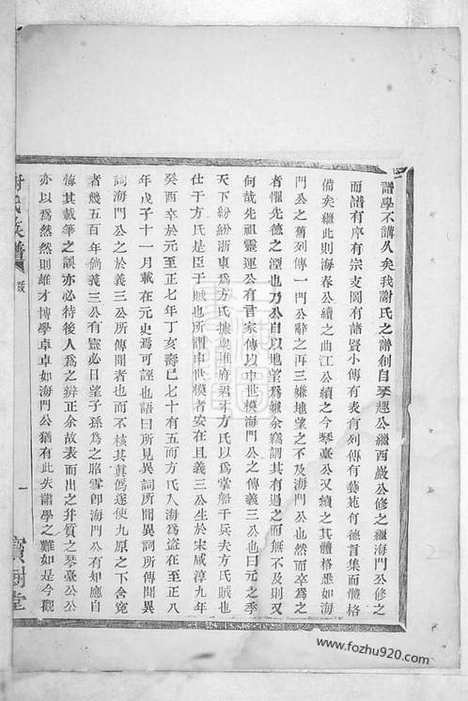 譜學不講久矣我謝氏之譜創自琴趕公繼西巖公修之繼海門公修之
而譜有序有宗支圖有諸賢小傳有表有藝苑有德言集而體格
備矣繼此則海春公續之曲江公續之今琴臺公又續之其體格悉如海
門公之舊列傳一門公續之再三嫌地望之不及海門公也然而卒為之
者懼先德之湮也乃公自以地望為嫌余竊謂其有過之而無不及則
何哉先祖靈運公有晉家傳以中世模海門公之傳義三公也曰元之季
天下紛紛浙東為方氏據 推府君才方氏以為掌船千兵夫方氏賊也
仕于方氏是臣于賊也所謂中世模者安在且義三公生於宋咸淳九年
癸酉卒於元至正七年丁亥壽已七十有五而方氏入海為盜在至正八
年戊子十一月載在元史焉可誣也語曰所見異詞所聞異詞所傳聞異
詞海門公之於義三公所傳聞者也而不核其真偽遂使九原之下含寃
者幾五百年倘義三公有靈必日望子孫為之昭雪卽海門公有知應自
悔其載筆之誤亦必待後人為之辨正余故表而出之并質之琴臺公公
亦以為然然則雄才博學卓卓如海門公猶有此失譜學之難如是今觀
謝氏族譜
跋
一
寶樹堂
www.fozhu920.com